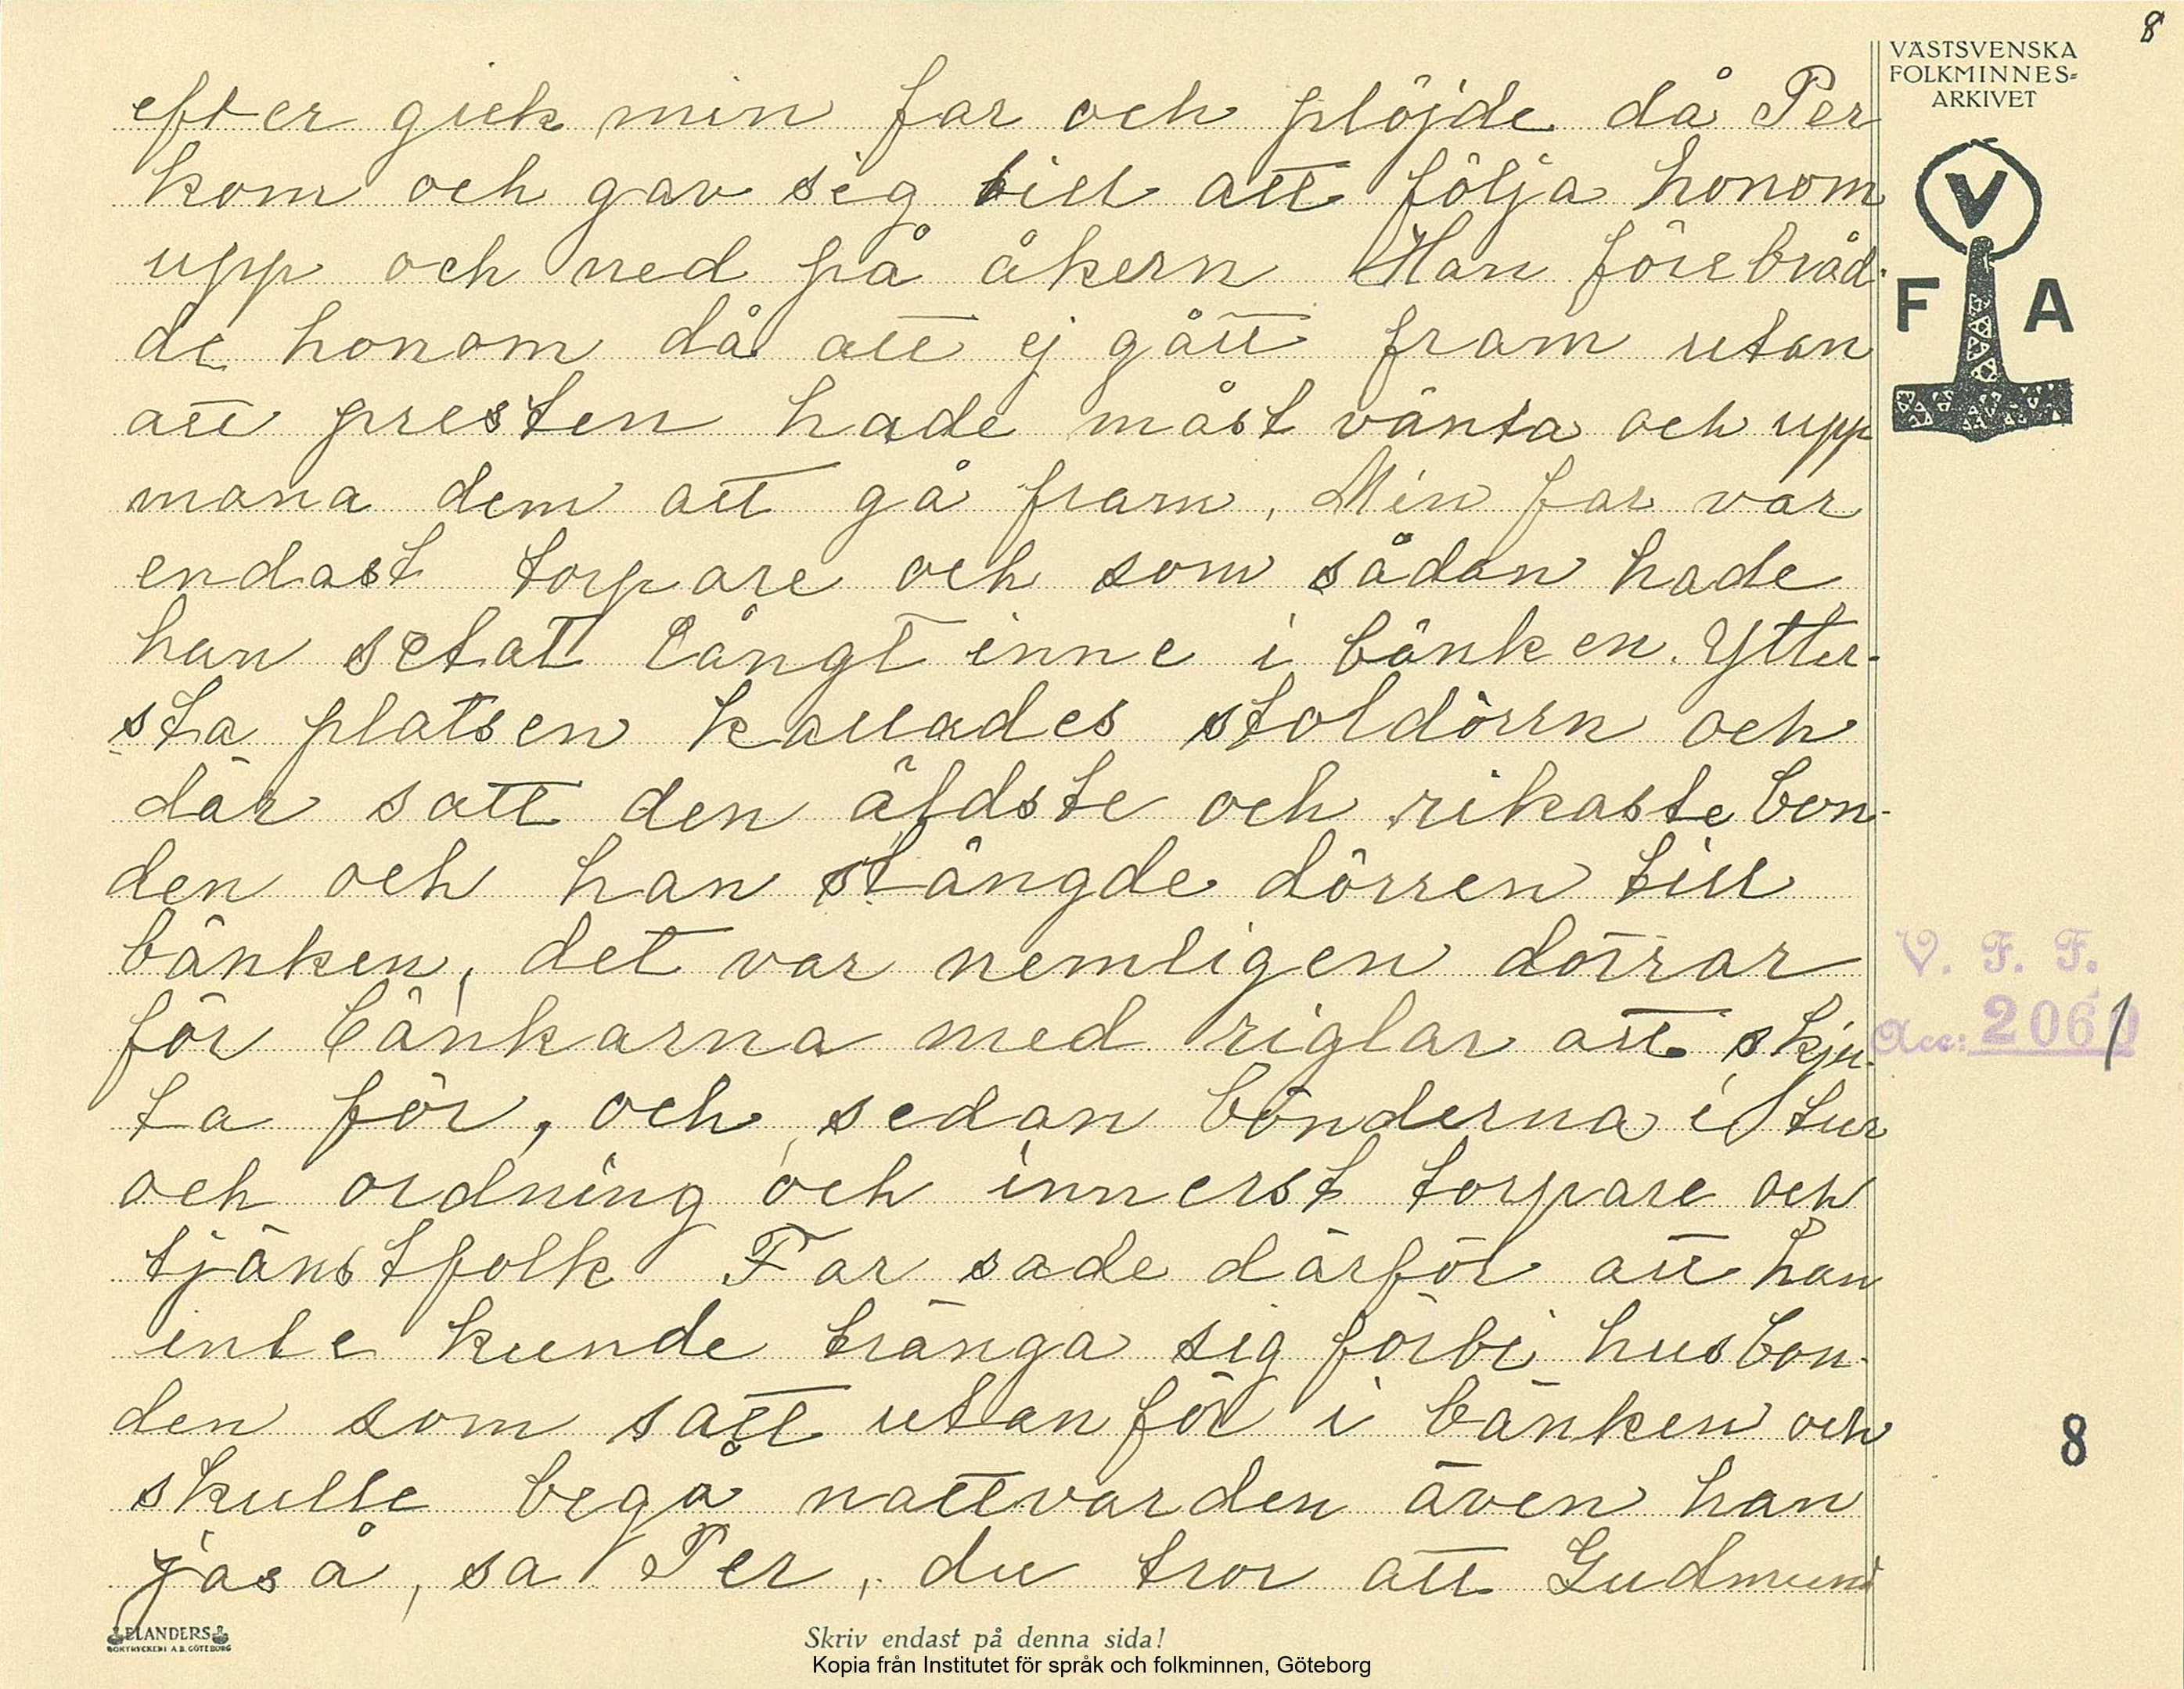 8
VÄSTSVENSKA
FOLKMINNES-
ARKIVET
V
F A
efter gick min far och plöjde då Per
kom och gav sig till att följa honom
upp och ned på åkern Han förebråd-
de honom då att ej gått fram utan
att presten hade måst vänta och upp
mana dem att gå fram, Min far var
endast torpare och som sådan hade
han setat långt inne i bänken. Ytter-
sta platsen kallades stoldörrn och
där satt den äldste och rikaste bon-
den och han stängde dörren till
bänken, det var nemligen dörrar
för bänkarna med riglar att skju-
ta för, och sedan bönderna i tur
och ordning och innerst torpare och
tjänstfolk Far sade därför att han
inte kunde tränga sig förbi husbon-
den som satt utanför i bänken och
skulle begå nattvarden även han
jaså, sa Per, du tror att Gudmund
V. F. F.
Acc: 2061
8
ELANDERS
BOKTRYCKERI A.B. GÖTEBORG
Skriv endast på denna sida!
Kopia från Institutet för språk och folkminnen, Göteborg